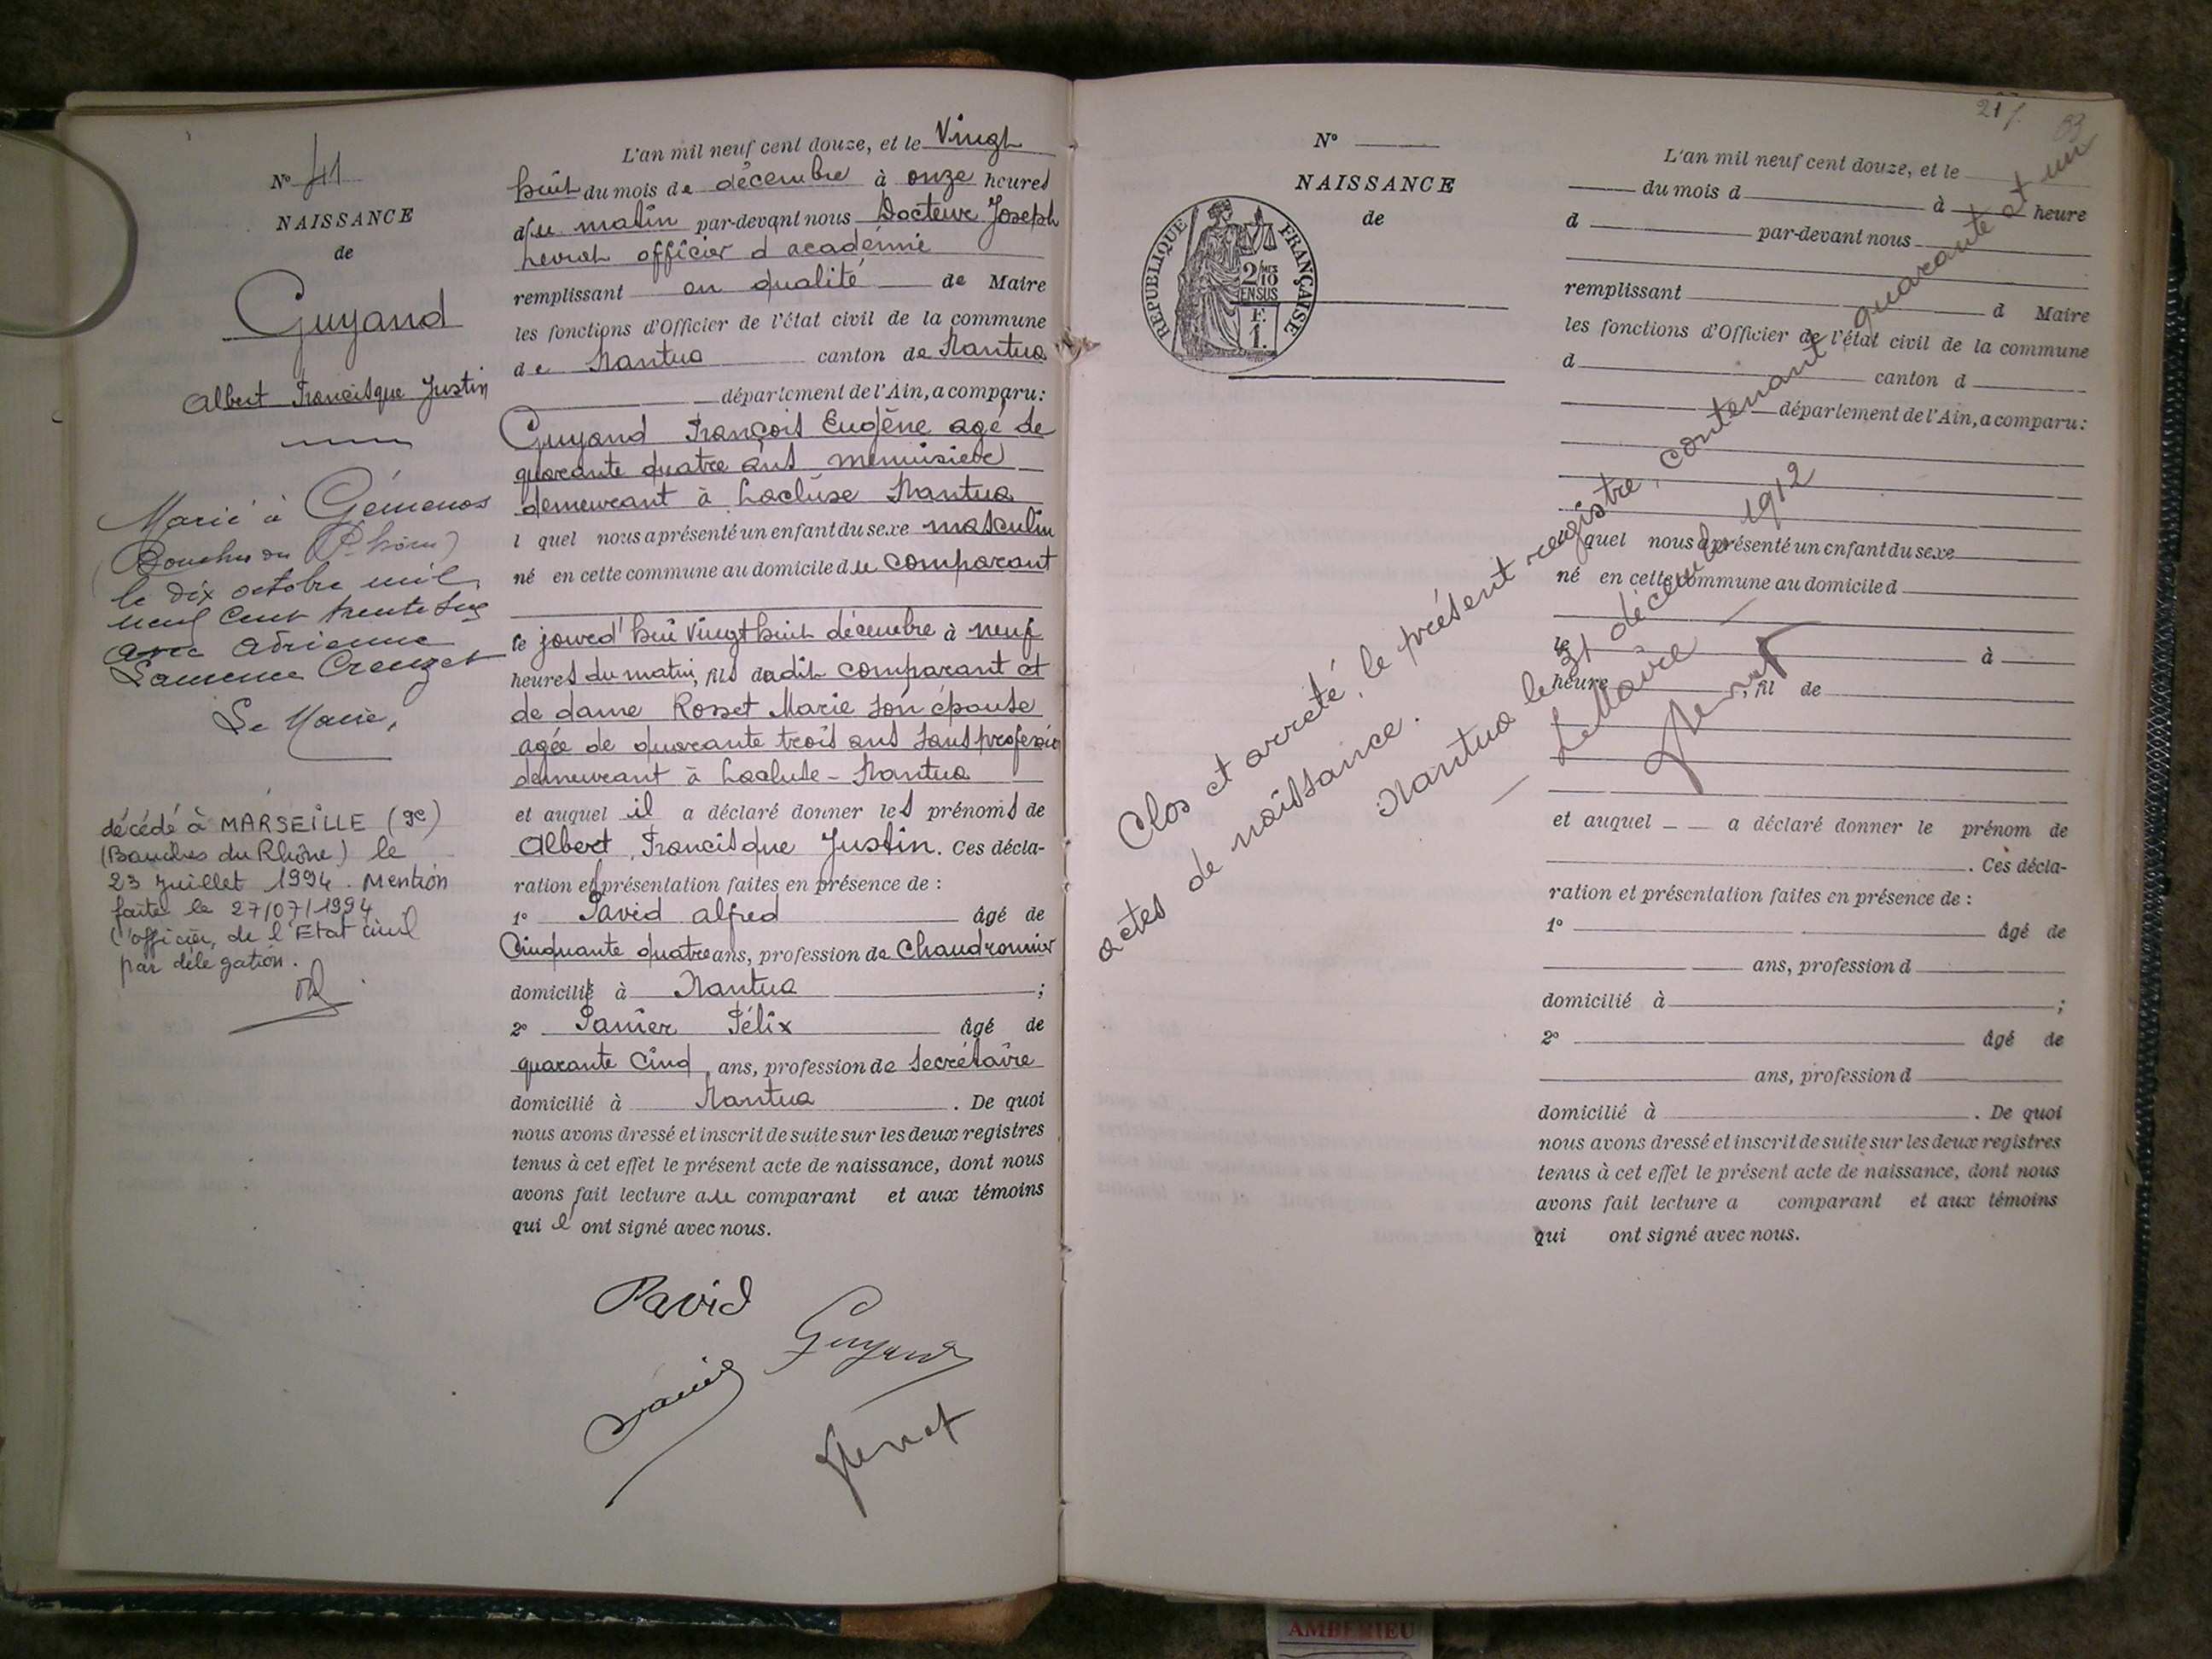 N° 41
NAISSANCE
de
Guyand
Albert Francisque Justin
Marié à Gémenos
(Bouches du Rhône)
le dix octobre mil
neuf cent trente six
avec Adrienne
Laurence Creuzet
Le Maire,
décédé à MARSEILLE (9e)
(Bouches du Rhône) le
23 juillet 1994. Mention
faite le 27/07/1994
l'officier de l'Etat civil
par délégation.
L'an mil neuf cent douze, et le Vingt
huit du mois de décembre à onze heures
du matin par-devant nous Docteur Joseph
officier d académie
remplissant en qualité de Maire
les fonctions d'Officier de l'état civil de la commune
de Nantua canton de Nantua
département de l'Ain, a comparu:
Guyand François Eugène agé de
quarante quatre ans menuisier
demeurant à Lacluse Nantua
l quel nous a présenté un enfant du sexe masculin
né en cette commune au domicile du comparant
le jourd'hui vingt huit décembre à neuf
heures du matin, fils dudit comparant et
de dame Rosset Marie son épouse
agée de quarante trois ans sans profession
demeurant à Lacluse-Nantua
et auquel il a déclaré donner les prénoms de
Albert, Francisque Justin. Ces décla-
ration et présentation faites en présence de :
1° Pavid alfred âgé de
Cinquante quatre ans, profession de Chaudronnier
domicilié à Nantua ;
2° Panier Félix âgé de
quarante Cinq ans, profession de Secrétaire
domicilié à Nantua . De quoi
nous avons dressé et inscrit de suite sur les deux registres
tenus à cet effet le présent acte de naissance, dont nous
avons fait lecture au comparant et aux témoins
qui l ont signé avec nous.
Pavid
Guyand
Panier
21
83
N°
NAISSANCE
de
REPUBLIQUE FRANÇAISE
2/10 MES
EN SUS
F.
1.
L'an mil neuf cent douze, et le
du mois d à heure
d par-devant nous
remplissant d Maire
les fonctions d'Officier de l'état civil de la commune
d canton d
département de l'Ain, a comparu:
quel nous a présenté un enfant du sexe
né en cette commune au domicile d
le à
heure , fil de
et auquel a déclaré donner le prénom de
. Ces décla-
ration et présentation faites en présence de :
1° âgé de
ans, profession d
domicilié à ;
2° âgé de
ans, profession d
domicilié à . De quoi
nous avons dressé et inscrit de suite sur les deux registres
tenus à cet effet le présent acte de naissance, dont nous
avons fait lecture a comparant et aux témoins
qui ont signé avec nous.
Clos et arreté, le présent registre, contenant quarante et un
actes de naissance.
Nantua le 31 décembre 1912
Le Maire
AMBERIEU